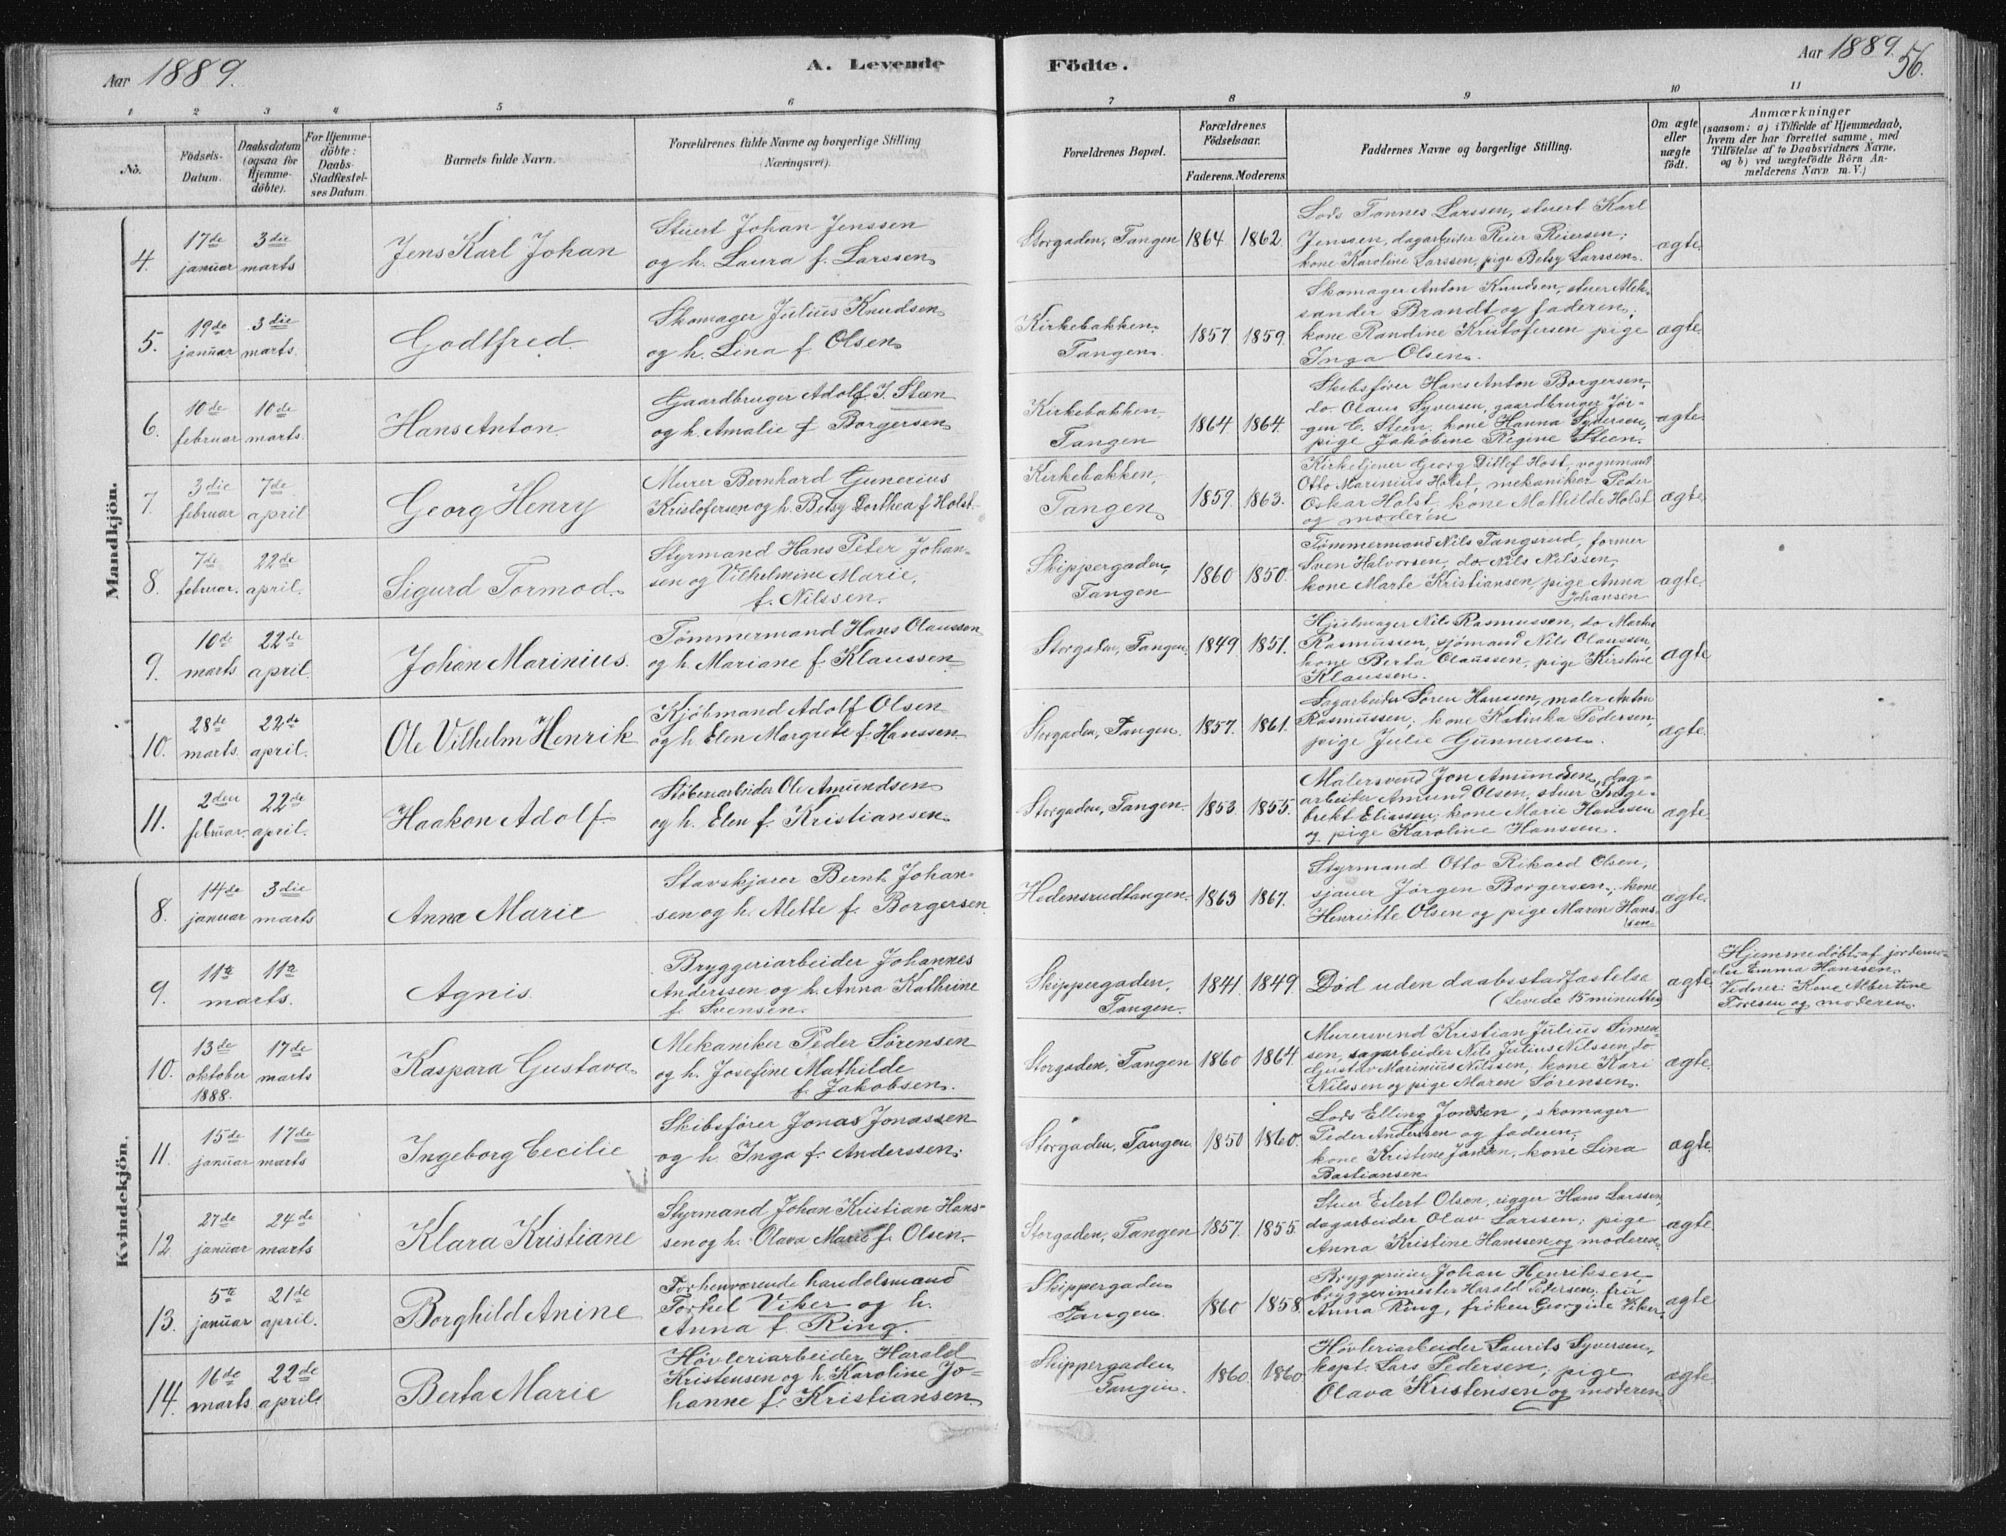 Aar 1889.
A. Levende
Födte.
Aar 1889.
56.
1 2 3 4 5 6 7 8 9 10 11
No.
Födsels-
Datum.
Daabsdatum
(ogsaa for
Hjemme-
döbte).
For Hjemme-
döbte:
Daabs-
Stadfæstel-
ses Datum
Barnets fulde Navn.
Forældrenes fulde Navne og borgerlige Stilling
(Næringsvei).
Forældrenes Bopæl.
Forældrenes
Födselsaar.
Faderens. Moderens.
Faddernes Navne og borgerlige Stilling.
Om ægte
eller
uægte
födt.
Anmærkninger
(saasom: a) i Tilfælde af Hjemmedaab,
hvem der har forrettet samme, med
Tilföielse af to Daabsvidners Navne,
og b) ved uægtefödte Börn An-
melderens Navn m. V.)
Mandkjön.
4.
17de
januar
3die
marts
Jens Karl Johan
Stuert Johan Jenssen
og h. Laura f. Larssen
Storgaden, Tangen
1864 1862
Lods Tønnes Larssen, stuert Karl
Jenssen, dagarbeider Reier Reiersen;
kone Karoline Larssen, pige Betsy Larssen.
ægte
5.
19de
januar
3die
marts.
Godtfred
Skomager Julius Knudsen
og h. Lina f. Olsen
Kirkebakken,
Tangen
1857 1859
Skomager Anton Knudsen, stuer Alek-
sander Brandt og faderen;
kone Randine Kristofersen pige
Inga Olsen.
ægte
6.
10de
februar
10de
marts.
Hans Anton
Gaardbruger Adolf J. Steen
og h. Amalie f. Borgersen
Kirkebakken,
Tangen
1864 1864
Skibsfører Hans Anton Borgersen,
do. Olaus Syversen, gaardbruger Jør-
gen C. Steen, kone Hanna Syversen,
pige Jakobine Regine Steen.
ægte
7.
3die
februar
7de
april
Georg Henry
Murer Bernhard Gunerius
Kristofersen og h. Betsy Dorthea f. Holst
Kirkebakken,
Tangen
1859. 1863.
Kirketjener Georg Ditlef Host, vognmand
Otto Marinius Holst, mekaniker Peder
Oskar Holst, kone Mathilde Holst
og moderen
ægte
8.
7de
februar.
22de
april.
Sigurd Tormod.
Styrmand Hans Peter Johan-
sen og Vilhelmine Marie,
f. Nilssen.
Skippergaden,
Tangen
1860 1850.
Tømmermand Nils Tangerud, former
Sven Halvorsen, do. Nils Nilssen,
kone Marte Kristiansen, pige Anna
Johansen
ægte
9.
10de
marts
22de
april
Johan Marinius.
Tømmermand Hans Olaussen
og h. Mariane f. Klaussen
Storgaden, Tangen.
1849 1851.
Hjulmager Nils Rasmussen, do.
Rasmussen, sjømand Nils Olaussen,
kone Berta Olaussen, pige Kirstine
Klaussen.
ægte
10.
28de
marts.
22de
april.
Ole Vilhelm Henrik
Kjøbmand Adolf Olsen
og h. Elen Margrete f. Hanssen
Storgaden, Tangen.
1857. 1861.
Sagarbeider Søren Hanssen, maler Anton
Rasmussen; kone Katinka Pedersen,
pige Julie Gunnersen.
ægte.
11.
2den
februar.
22de
april.
Haakon Adolf.
Støberiarbeider Ole Amundsen
og h. Elen f. Kristiansen
Storgaden, Tangen.
1853. 1855.
Malersvend Jon Amundsen, dag-
arbeider Amund Olsen, stuer Inge-
brekt Eliassen; kone Marie Hanssen
og pige Karoline Hanssen.
ægte
Kvindekjön.
8.
14de
januar
3die
marts
Anna Marie
Stavskjører Bernt Johan-
sen og h. Alette f. Borgersen.
Hedensrudtangen.
1863 1867.
Styrmand Otto Rikard Olsen,
sjauer Jørgen Borgersen, kone
Henriette Olsen og pige Maren Hans-
sen
ægte.
9.
11te 11te
marts.
Agnis.
Bryggeriarbeider Johannes
Anderssen og h. Anna Kathrine
f. Svensen.
Skippergaden,
Tangen.
1841. 1849.
Død uden daabsstadfæstelse
(Levede 15 minutter)
ægte
Hjemmedøbt af jordemo-
der Emma Hanssen.
Vidner: Kone Albertine
Toresen og moderen.
10.
13de
oktober
1888.
17de
marts
Kaspara Gustava
Mekaniker Peder Sørensen
og h. Josefine Mathilde
f. Jakobsen.
Storgaden, Tangen
1860 1864.
Murersvend Kristian Julius Simen-
sen, sagarbeider Nils Julius Nilssen, do
Gustav Marinius Nilssen, kone Kari
Nilssen og pige Maren Sørensen.
ægte.
11.
15de
januar
17de
marts
Ingeborg Cecilie
Skibsfører Jonas Jonassen
og h. Inga f. Anderssen.
Storgaden, Tangen
1850 1860.
Lods Elling Jonsen, skomager
Peder Anderssen og faderen;
kone Kristine Jansen, kone Lina
Bastiansen
ægte.
12.
27de
januar
24de
marts
Klara Kristiane
Styrmand Johan Kristian Hans-
sen og h. Olava Marie f. Olsen.
Storgaden, Tangen
1857. 1855.
Stuer Eilert Olsen, rigger Hans Larssen,
dagarbeider Olav Larssen; pige
Anna Kristine Hanssen og moderen.
ægte
13.
5te
januar
21de
april.
Borghild Anine
Forhenværende handelsmand
Torkel Viker og h.
Anna f. Ring.
Skippergaden
Tangen
1860 1858.
Bryggerieier Johan Henriksen,
bryggerimester Harald Pedersen, fru
Anna Ring, frøken Georgine Viker.
ægte
14.
16de
marts
22de
april.
Berta Marie
Høvleriarbeider Harald
Kristensen og h. Karoline Jo-
hanne f. Kristiansen
Skippergaden
Tangen.
1860. 1860
Høvleriarbeider Laurits Syversen,
kapt. Lars Pedersen; pige
Olava Kristensen og moderen
ægte